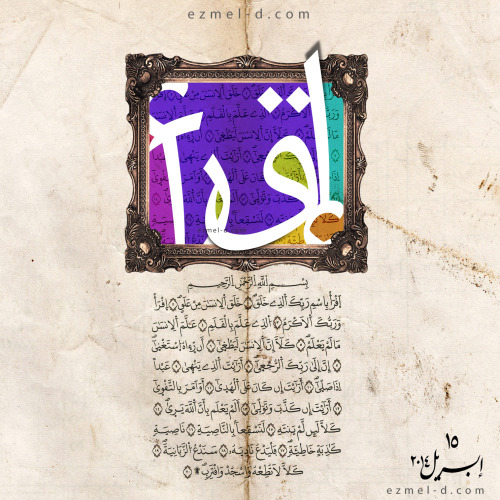 ezmel-d.com
اقرأ
ezmel-d
بِسْمِ اللَّهِ الرَّحْمَٰنِ الرَّحِيمِ
ٱقْرَأْ بِٱسْمِ رَبِّكَ ٱلَّذِى خَلَقَ ١ خَلَقَ ٱلْإِنسَٰنَ مِنْ عَلَقٍ ٢ ٱقْرَأْ
وَرَبُّكَ ٱلْأَكْرَمُ ٣ ٱلَّذِى عَلَّمَ بِٱلْقَلَمِ ٤ عَلَّمَ ٱلْإِنسَٰنَ
مَا لَمْ يَعْلَمْ ٥ كَلَّآ إِنَّ ٱلْإِنسَٰنَ لَيَطْغَىٰٓ ٦ أَن رَّءَاهُ ٱسْتَغْنَىٰٓ
٧ إِنَّ إِلَىٰ رَبِّكَ ٱلرُّجْعَىٰٓ ٨ أَرَءَيْتَ ٱلَّذِى يَنْهَىٰ ٩ عَبْدًا
إِذَا صَلَّىٰٓ ١٠ أَرَءَيْتَ إِن كَانَ عَلَى ٱلْهُدَىٰٓ ١١ أَوْ أَمَرَ بِٱلتَّقْوَىٰٓ
١٢ أَرَءَيْتَ إِن كَذَّبَ وَتَوَلَّىٰٓ ١٣ أَلَمْ يَعْلَم بِأَنَّ ٱللَّهَ يَرَىٰ ١٤
كَلَّا لَئِن لَّمْ يَنتَهِ ١٥ لَنَسْفَعًۢا بِٱلنَّاصِيَةِ نَاصِيَةٍ
كَٰذِبَةٍ خَاطِئَةٍ ١٦ فَلْيَدْعُ نَادِيَهُۥ ١٧ سَنَدْعُ ٱلزَّبَانِيَةَ ١٨
كَلَّا لَا تُطِعْهُ وَٱسْجُدْ وَٱقْتَرِب ۩ ١٩
١٥
إبريل ٢٠١٤
ezmel-d.com